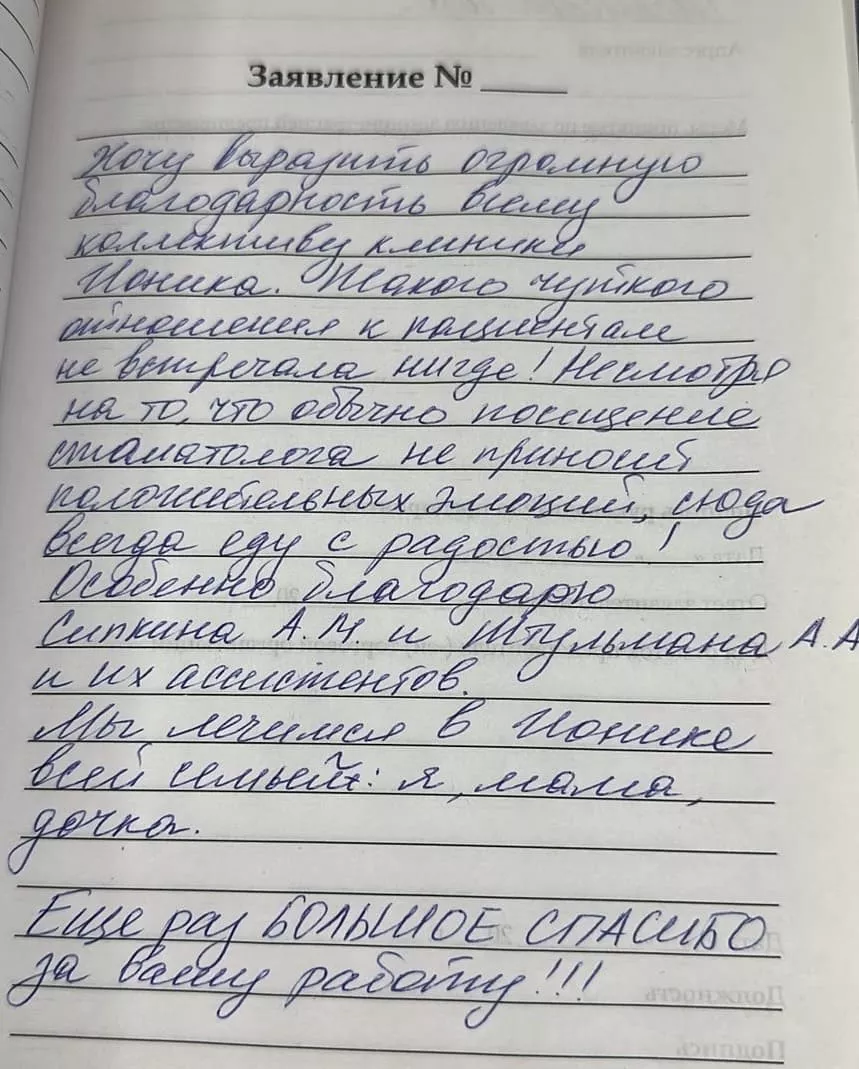 Заявление № ____
Хочу выразить огромную
благодарность всему
коллективу клиники
Ионика. Такого чуткого
отношения к пациентам
не встречала нигде! Несмотря
на то, что обычно посещение
стоматолога не приносит
положительных эмоций, сюда
всегда еду с радостью!
Особенно благодарю
Сипкина А.М. и Штульмана А.А
и их ассистентов.
Мы лечимся в Ионике
всей семьей: я, мама,
дочка.
Еще раз БОЛЬШОЕ СПАСИБО
за вашу работу!!!
Должность
Подпись